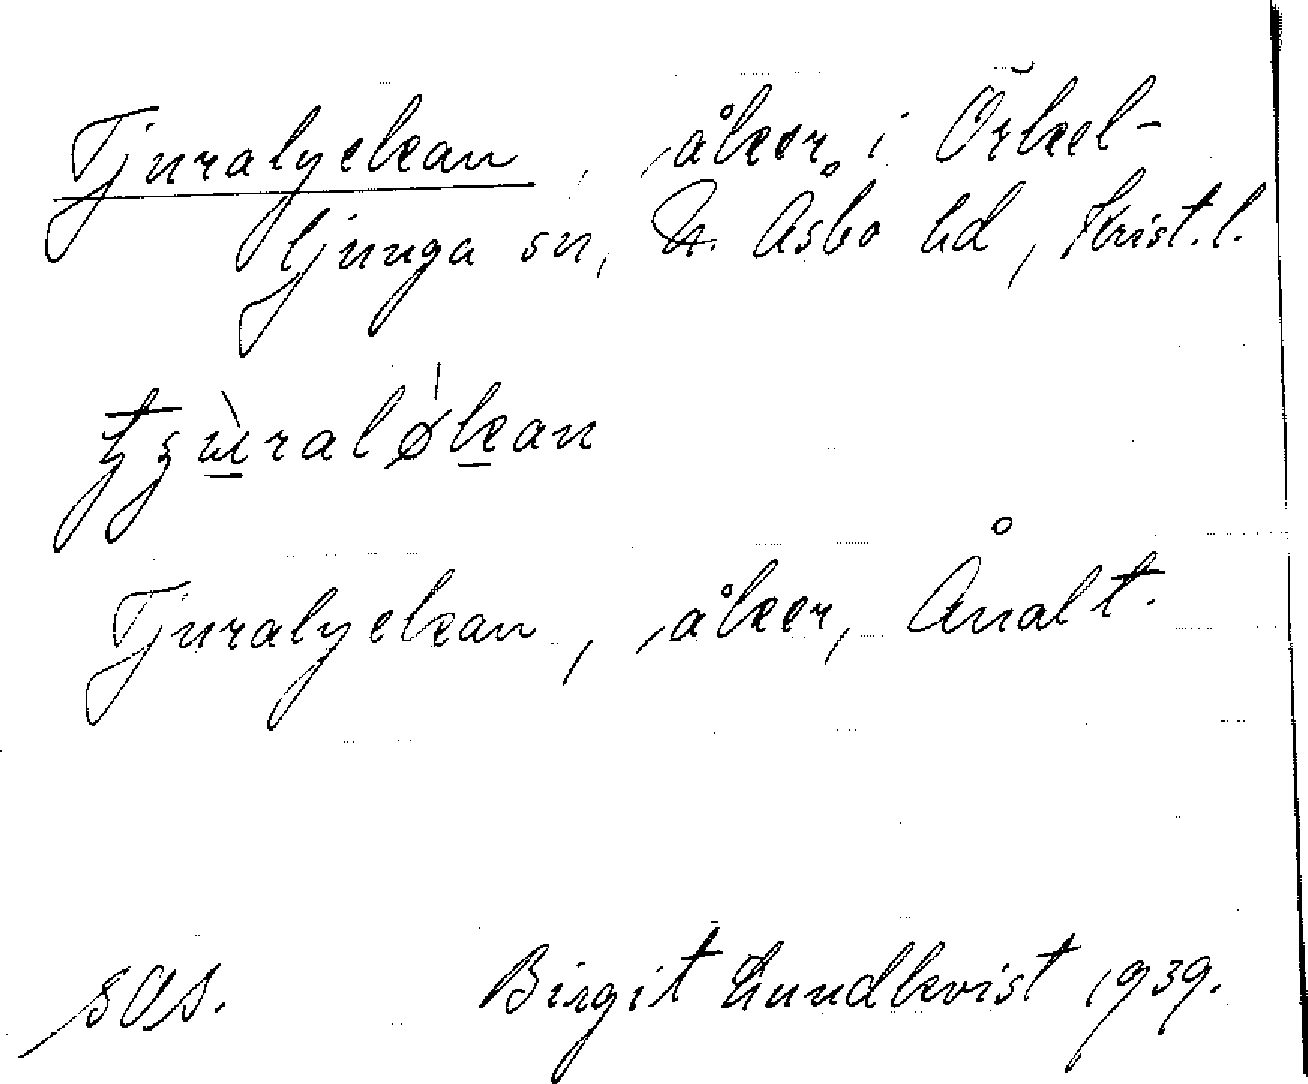 Tjuralyckan, åker i Örkel-
ljunga sn, N. Åsbo hd, Krist. l.
Tjuralyckan, åker, Ånalt.
SOS. Birgit Lundkvist 1939.